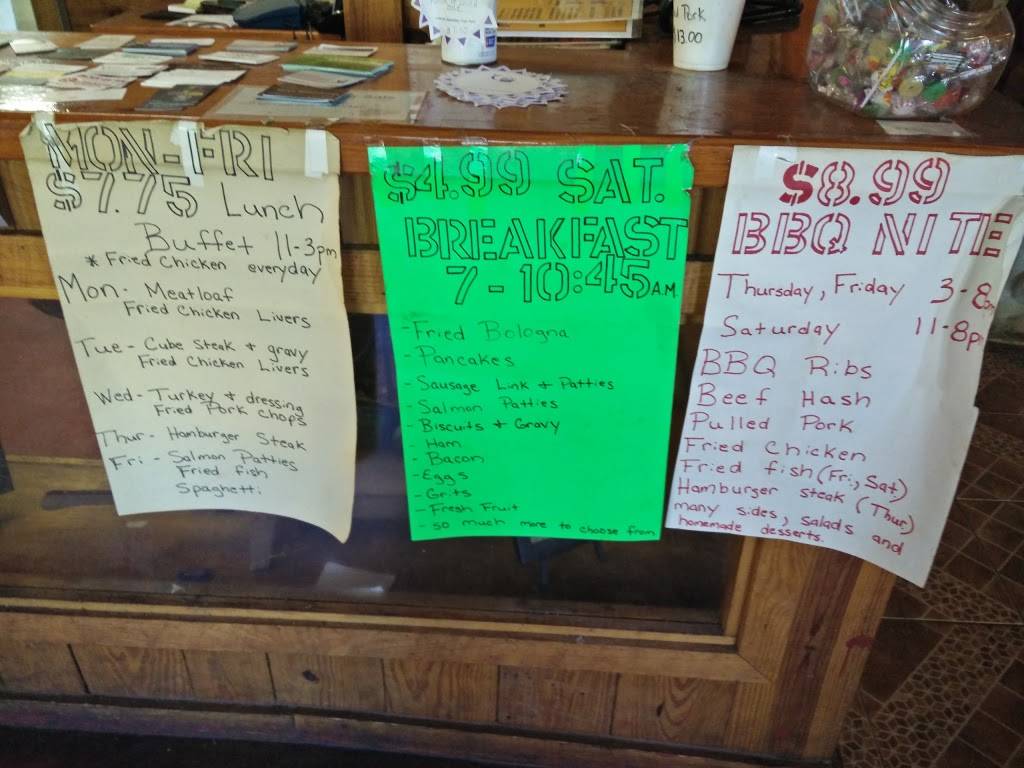 Pork
13.00
MON-FRI
$7.75 Lunch
Buffet 11-3pm
* Fried Chicken everyday
Mon- Meatloaf
Fried Chicken Livers
Tue- Cube Steak + gravy
Fried Chicken Livers
Wed- Turkey + dressing
Fried Pork Chops
Thur- Hamburger Steak
Fri- Salmon Patties
Fried fish
Spaghetti
$4.99 SAT.
BREAKFAST
7-10:45 A.M.
-Fried Bologna
-Pancakes
-Sausage Link + Patties
-Salmon Patties
-Biscuits + Gravy
-Ham
-Bacon
-Eggs
-Grits
-Fresh Fruit
-so much more to choose from
$8.99
BBQ NITE
Thursday, Friday 3-8pm
Saturday 11-8p
BBQ Ribs
Beef Hash
Pulled Pork
Fried Chicken
Fried fish (Fri, Sat)
Hamburger steak (Thur)
many sides, salads and
homemade desserts.